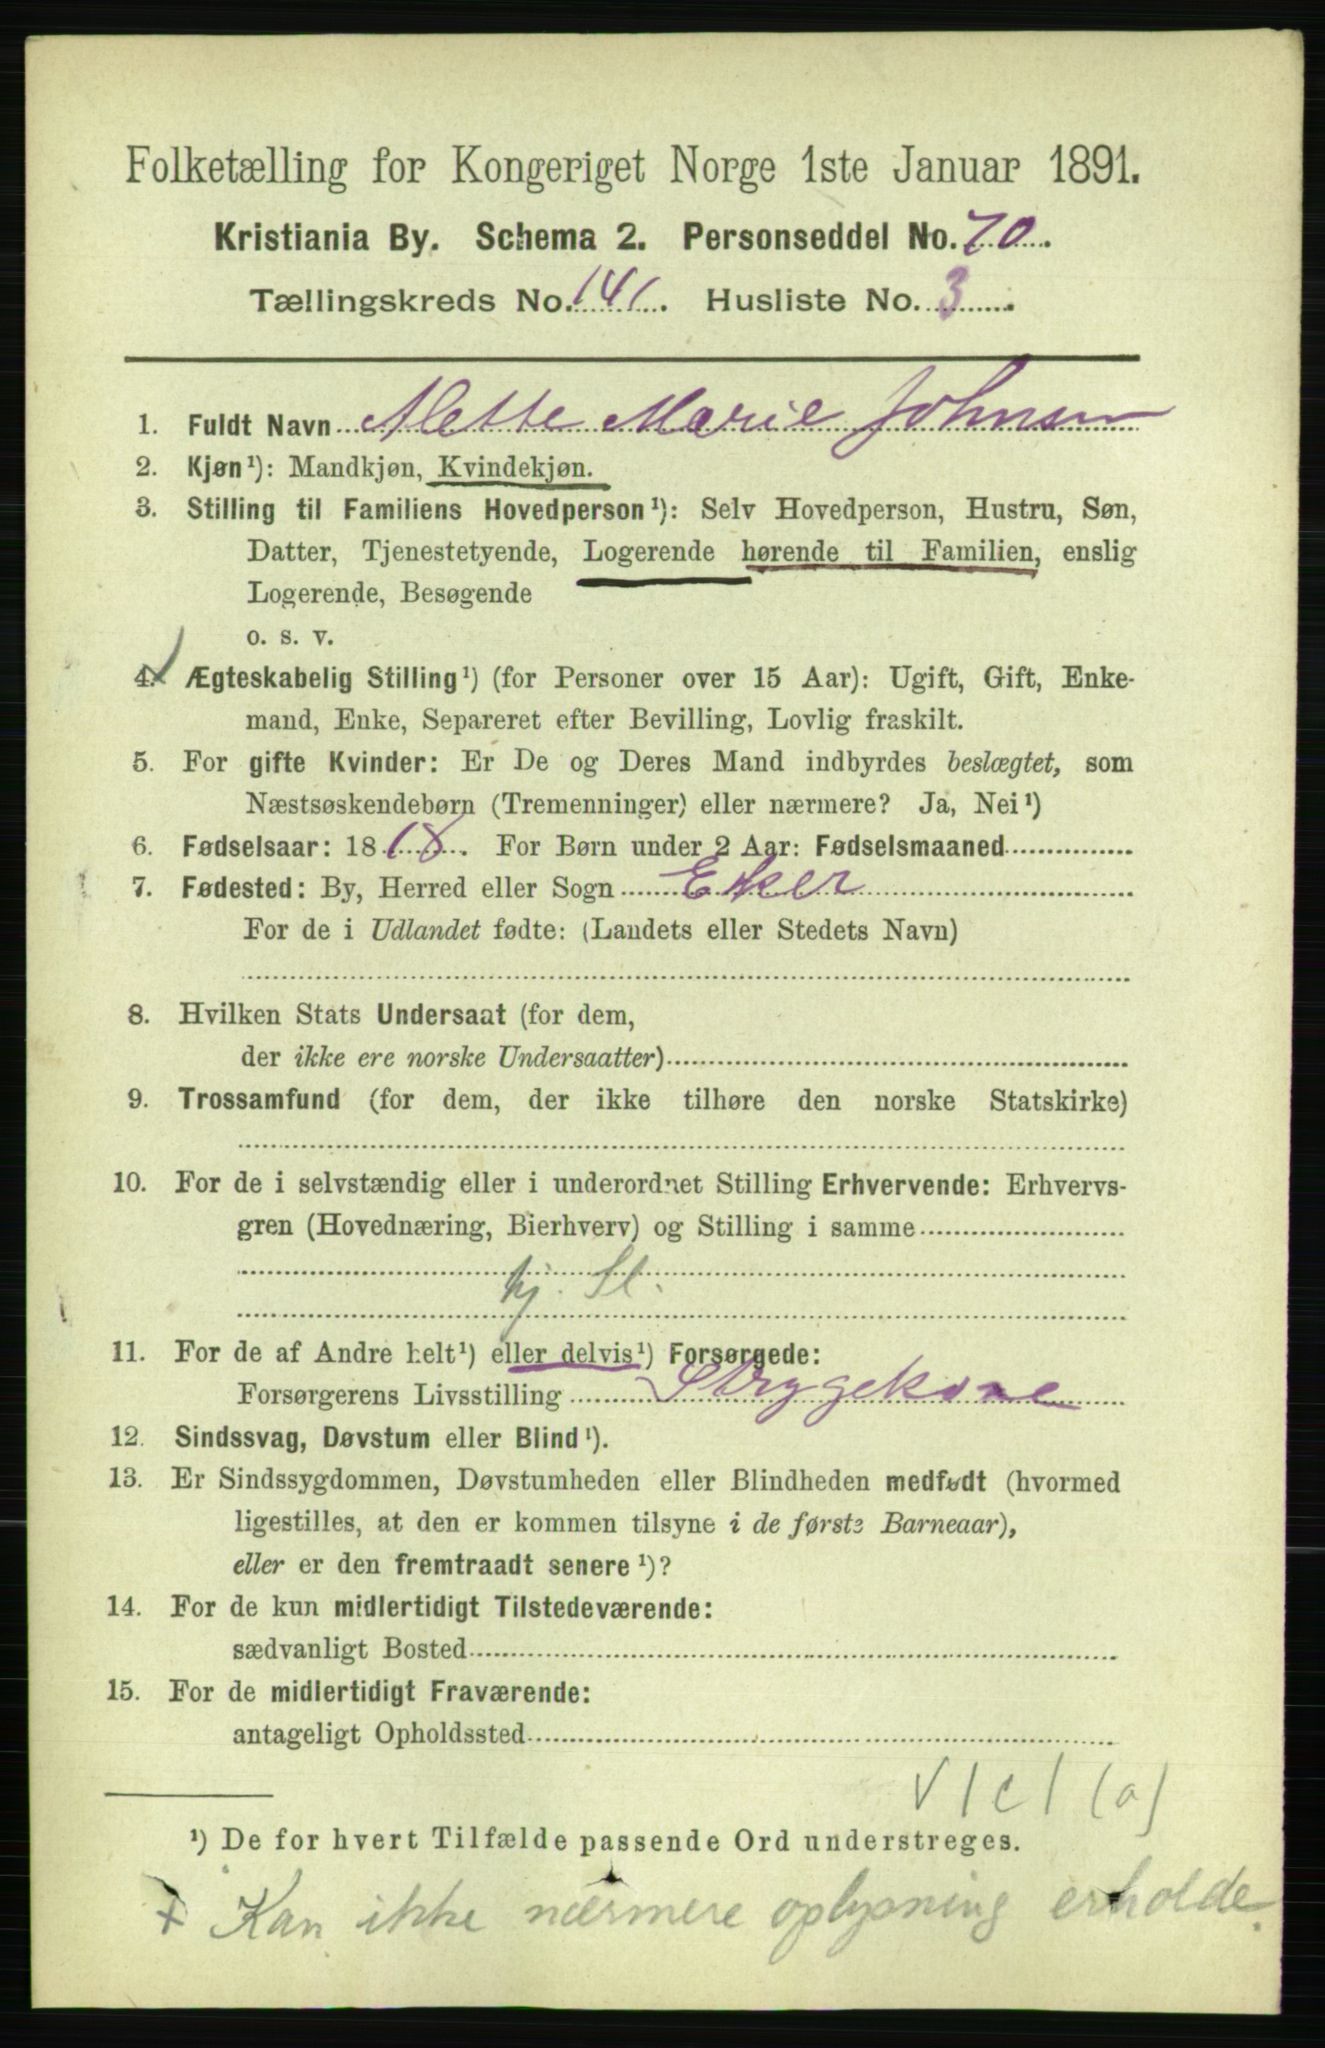 Folketælling for Kongeriget Norge 1ste Januar 1891.
Kristiania By. Schema 2. Personseddel No. 70.
Tællingskreds No. 141. Husliste No. 3.
1. Fuldt Navn Mette Marie Johnsen
2. Kjøn¹): Mandkjøn, Kvindekjøn.
3. Stilling til Familiens Hovedperson¹): Selv Hovedperson, Hustru, Søn,
Datter, Tjenestetyende, Logerende hørende til Familien, enslig
Logerende, Besøgende
o. s. v.
4. Ægteskabelig Stilling¹) (for Personer over 15 Aar): Ugift, Gift, Enke-
mand, Enke, Separeret efter Bevilling, Lovlig fraskilt.
5. For gifte Kvinder: Er De og Deres Mand indbyrdes beslægtet, som
Næstsøskendebørn (Tremenninger) eller nærmere? Ja, Nei¹)
6. Fødselsaar: 1818. For Børn under 2 Aar: Fødselsmaaned
7. Fødested: By, Herred eller Sogn Eker
For de i Udlandet fødte: (Landets eller Stedets Navn)
8. Hvilken Stats Undersaat (for dem,
der ikke ere norske Undersaatter)
9. Trossamfund (for dem, der ikke tilhøre den norske Statskirke)
10. For de i selvstændig eller i underordnet Stilling Erhvervende: Erhvervs-
gren (Hovednæring, Bierhverv) og Stilling i samme
hj. Sl.
11. For de af Andre helt¹) eller delvis¹) Forsørgede:
Forsørgerens Livsstilling Strygekone
12. Sindssvag, Døvstum eller Blind¹).
13. Er Sindssygdommen, Døvstumheden eller Blindheden medfødt (hvormed
ligestilles, at den er kommen tilsyne i de første Barneaar),
eller er den fremtraadt senere¹)?
14. For de kun midlertidigt Tilstedeværende:
sædvanligt Bosted
15. For de midlertidigt Fraværende:
antageligt Opholdssted
V | c | (a)
¹) De for hvert Tilfælde passende Ord understreges.
+ Kan ikke nærmere oplysning erholde.